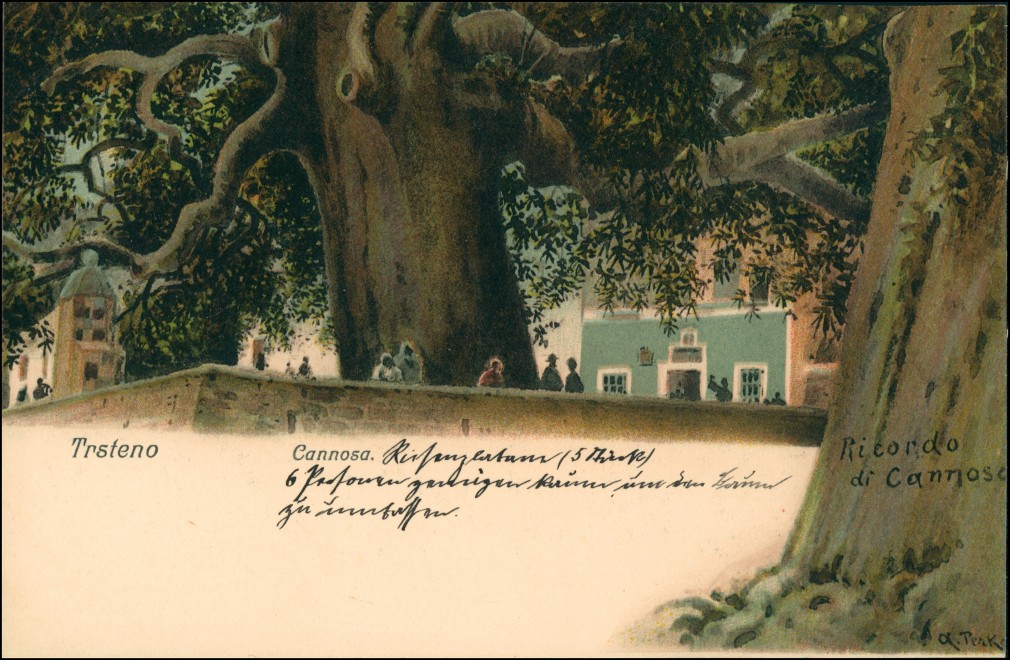 Trsteno
Cannosa. Riesenplatane (5 Stück)
6 Personen genügen kaum, um den Baum
zu umfassen.
Ricordo
di Cannosa
A. Perk